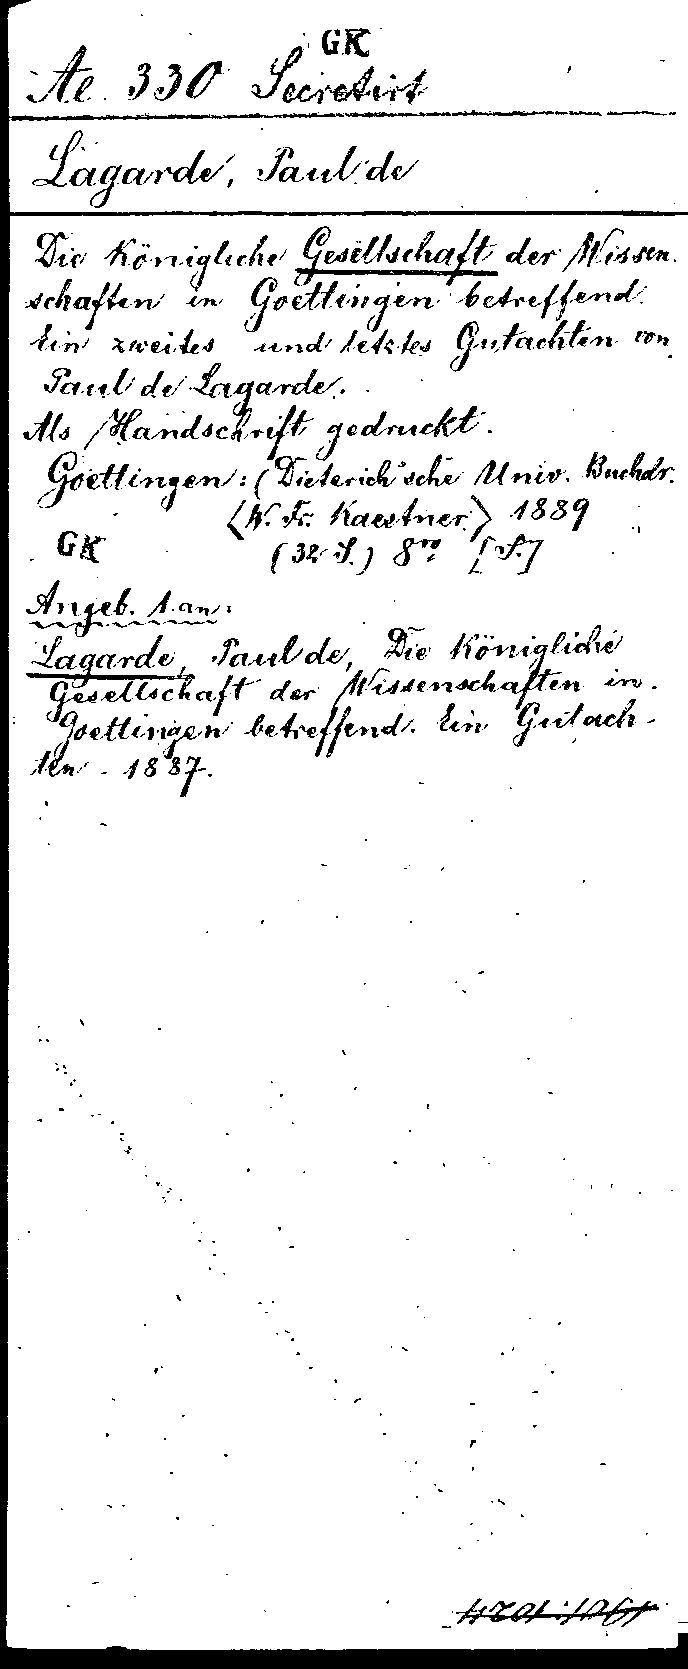 GK
Ae. 330 Secretirt
Lagarde, Paul de
Die Königliche Gesellschaft der Wissen
schaften in Goettingen betreffend.
Ein zweites und letztes Gutachten von
Paul de Lagarde.
Als Handschrift gedruckt.
Goettingen: (Dieterich'sche Univ. Buchdr.
<W. Fr. Kaestner> 1889
GK (32 S.) 8ᵛᵒ [S.]
Angeb. 1. an:
Lagarde, Paul de, Die Königliche
Gesellschaft der Wissenschaften in
Goettingen betreffend. Ein Gutach-
ten. 1887.